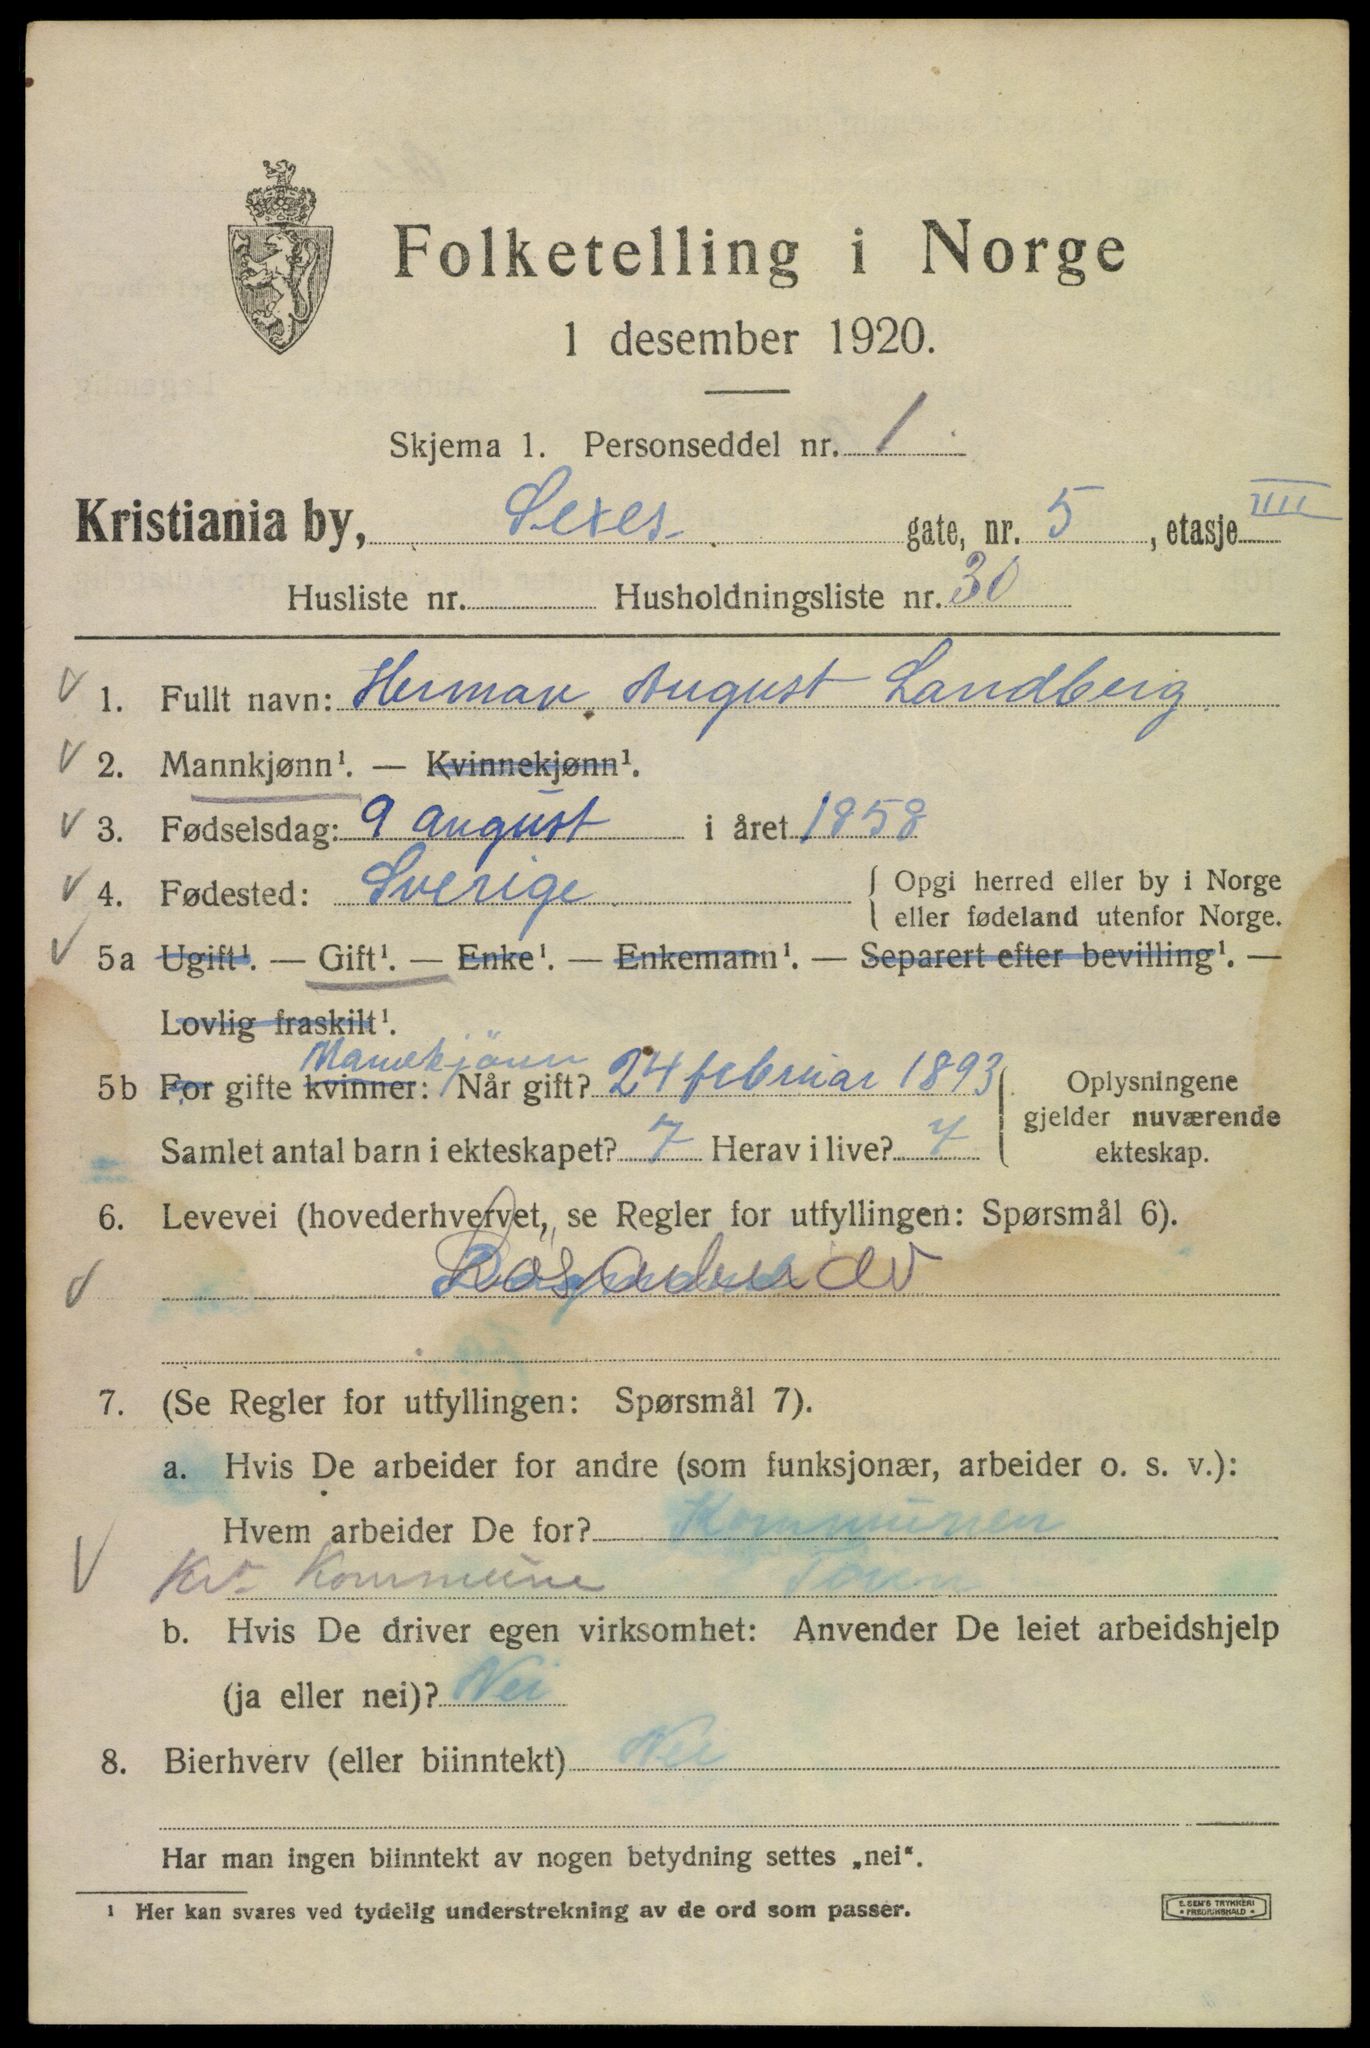 Folketelling i Norge
1 desember 1920.
Skjema 1. Personseddel nr. 1
Kristiania by, Sexes gate, nr. 5, etasje IIII
Husliste nr. Husholdningsliste nr. 30
1. Fullt navn: Herman August Landberg
2. Mannkjønn¹. — Kvinnekjønn¹.
3. Fødselsdag: 9 august i året 1858
4. Fødested: Sverige { Opgi herred eller by i Norge
eller fødeland utenfor Norge.
5a Ugift¹. — Gift¹. — Enke¹. — Enkemann¹. — Separert efter bevilling¹. —
Lovlig fraskilt¹.
Mannkjönn
5b For gifte kvinner: Når gift? 24 februar 1893 { Oplysningene
gjelder nuværende
Samlet antal barn i ekteskapet? 7 Herav i live? 7 ekteskap.
6. Levevei (hovederhvervet, se Regler for utfyllingen: Spørsmål 6).
7. (Se Regler for utfyllingen: Spørsmål 7).
a. Hvis De arbeider for andre (som funksjonær, arbeider o. s. v.):
Hvem arbeider De for? Kommunen
Kr. Kommune
b. Hvis De driver egen virksomhet: Anvender De leiet arbeidshjelp
(ja eller nei)? Nei
8. Bierhverv (eller biinntekt) Nei
Har man ingen biinntekt av nogen betydning settes „nei“.
¹ Her kan svares ved tydelig understrekning av de ord som passer.
E. SEM'S TRYKKERI
• FREDRIKSHALD •